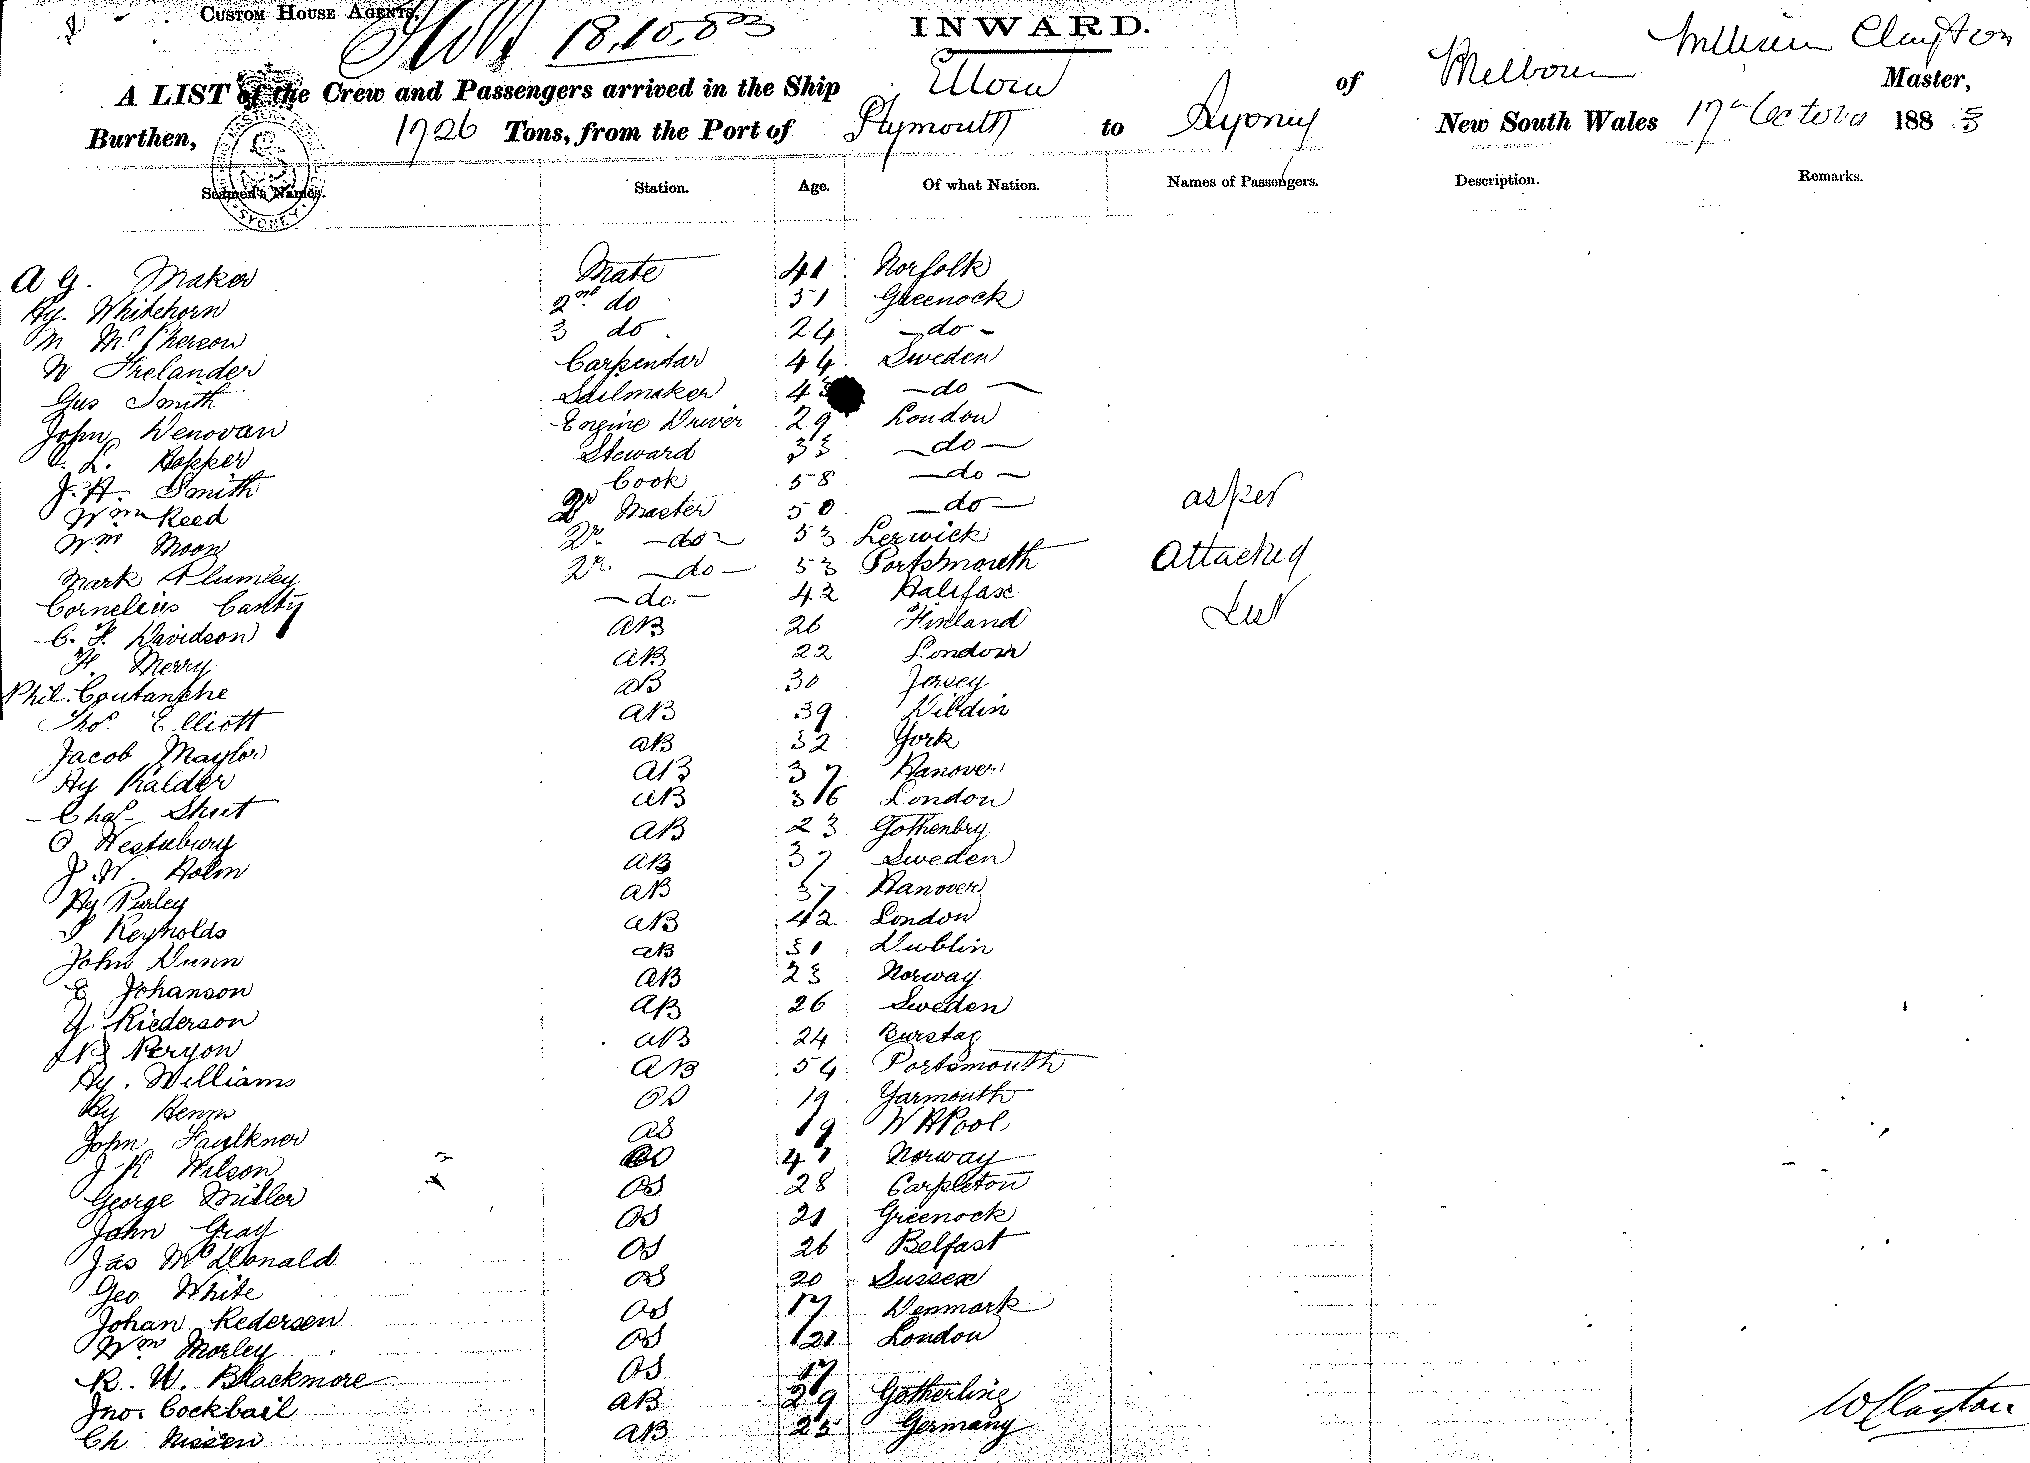 CUSTOM HOUSE AGENTS. 18.10.83
INWARD.
William Clayton
A LIST of the Crew and Passengers arrived in the Ship Ellora of Melbourn Master,
Burthen, 1726 Tons, from the Port of Plymouth to Sydney New South Wales 17th October 1883
Seamen's Names. Station. Age. Of what Nation. Names of Passengers. Description. Remarks.
SYDNEY
A G. Maker Mate 41 Norfolk
Hy. Whitehorn 2nd do 31 Greenock
McPherson 3 do 24 -do-
Frelander Carpentar 44 Sweden
Gus Smith Sailmaker -do-
John Denovan Engine Driver 29 London
L. Hopper Steward 33 -do-
J. H. Smith Cook 58 -do-
Wm Reed Qr Master 50 -do-
Wm Moon Qr -do- 53 Lerwick
Mark Plumley Qr -do- 53 Portsmouth
Cornelius Canty -do- 42 Halifax
C. F. Davidson AB 26 Finland
H. Merry AB 22 London
Phil. Coutanche AB 30 Jersey
Thos Elliott AB 39
Jacob Maylor AB 32 York
Hy Kalder AB 37 Hanover
Chas Shut AB 36 London
O Westubury AB 23 Gothenbry
J. W. Holm AB 37 Sweden
Hy Purley AB 37 Hanover
Reynolds AB 42 London
John Dunn AB 31 Dublin
E Johanson AB 23 Norway
Riederson AB 26 Sweden
Peryon AB 24
Hy. Williams AB 54 Portsmouth
Hy Henns OS 19 Yarmouth
John Faulkner OS 19 W HPool
J R Wilson 41 Norway
George Miller OS 28 Carpleton
John Gray OS 21 Greenock
Jas McDonald OS 26 Belfast
Geo White OS 20 Sussex
Johan Pedersen OS 17 Denmark
Wm Morley OS 21 London
R. W. Blackmore OS 17
Jno. Cockbail AB 29 Gotherling
Ch Nissen AB 25 Germany
as per
Attached
List
W Clayton